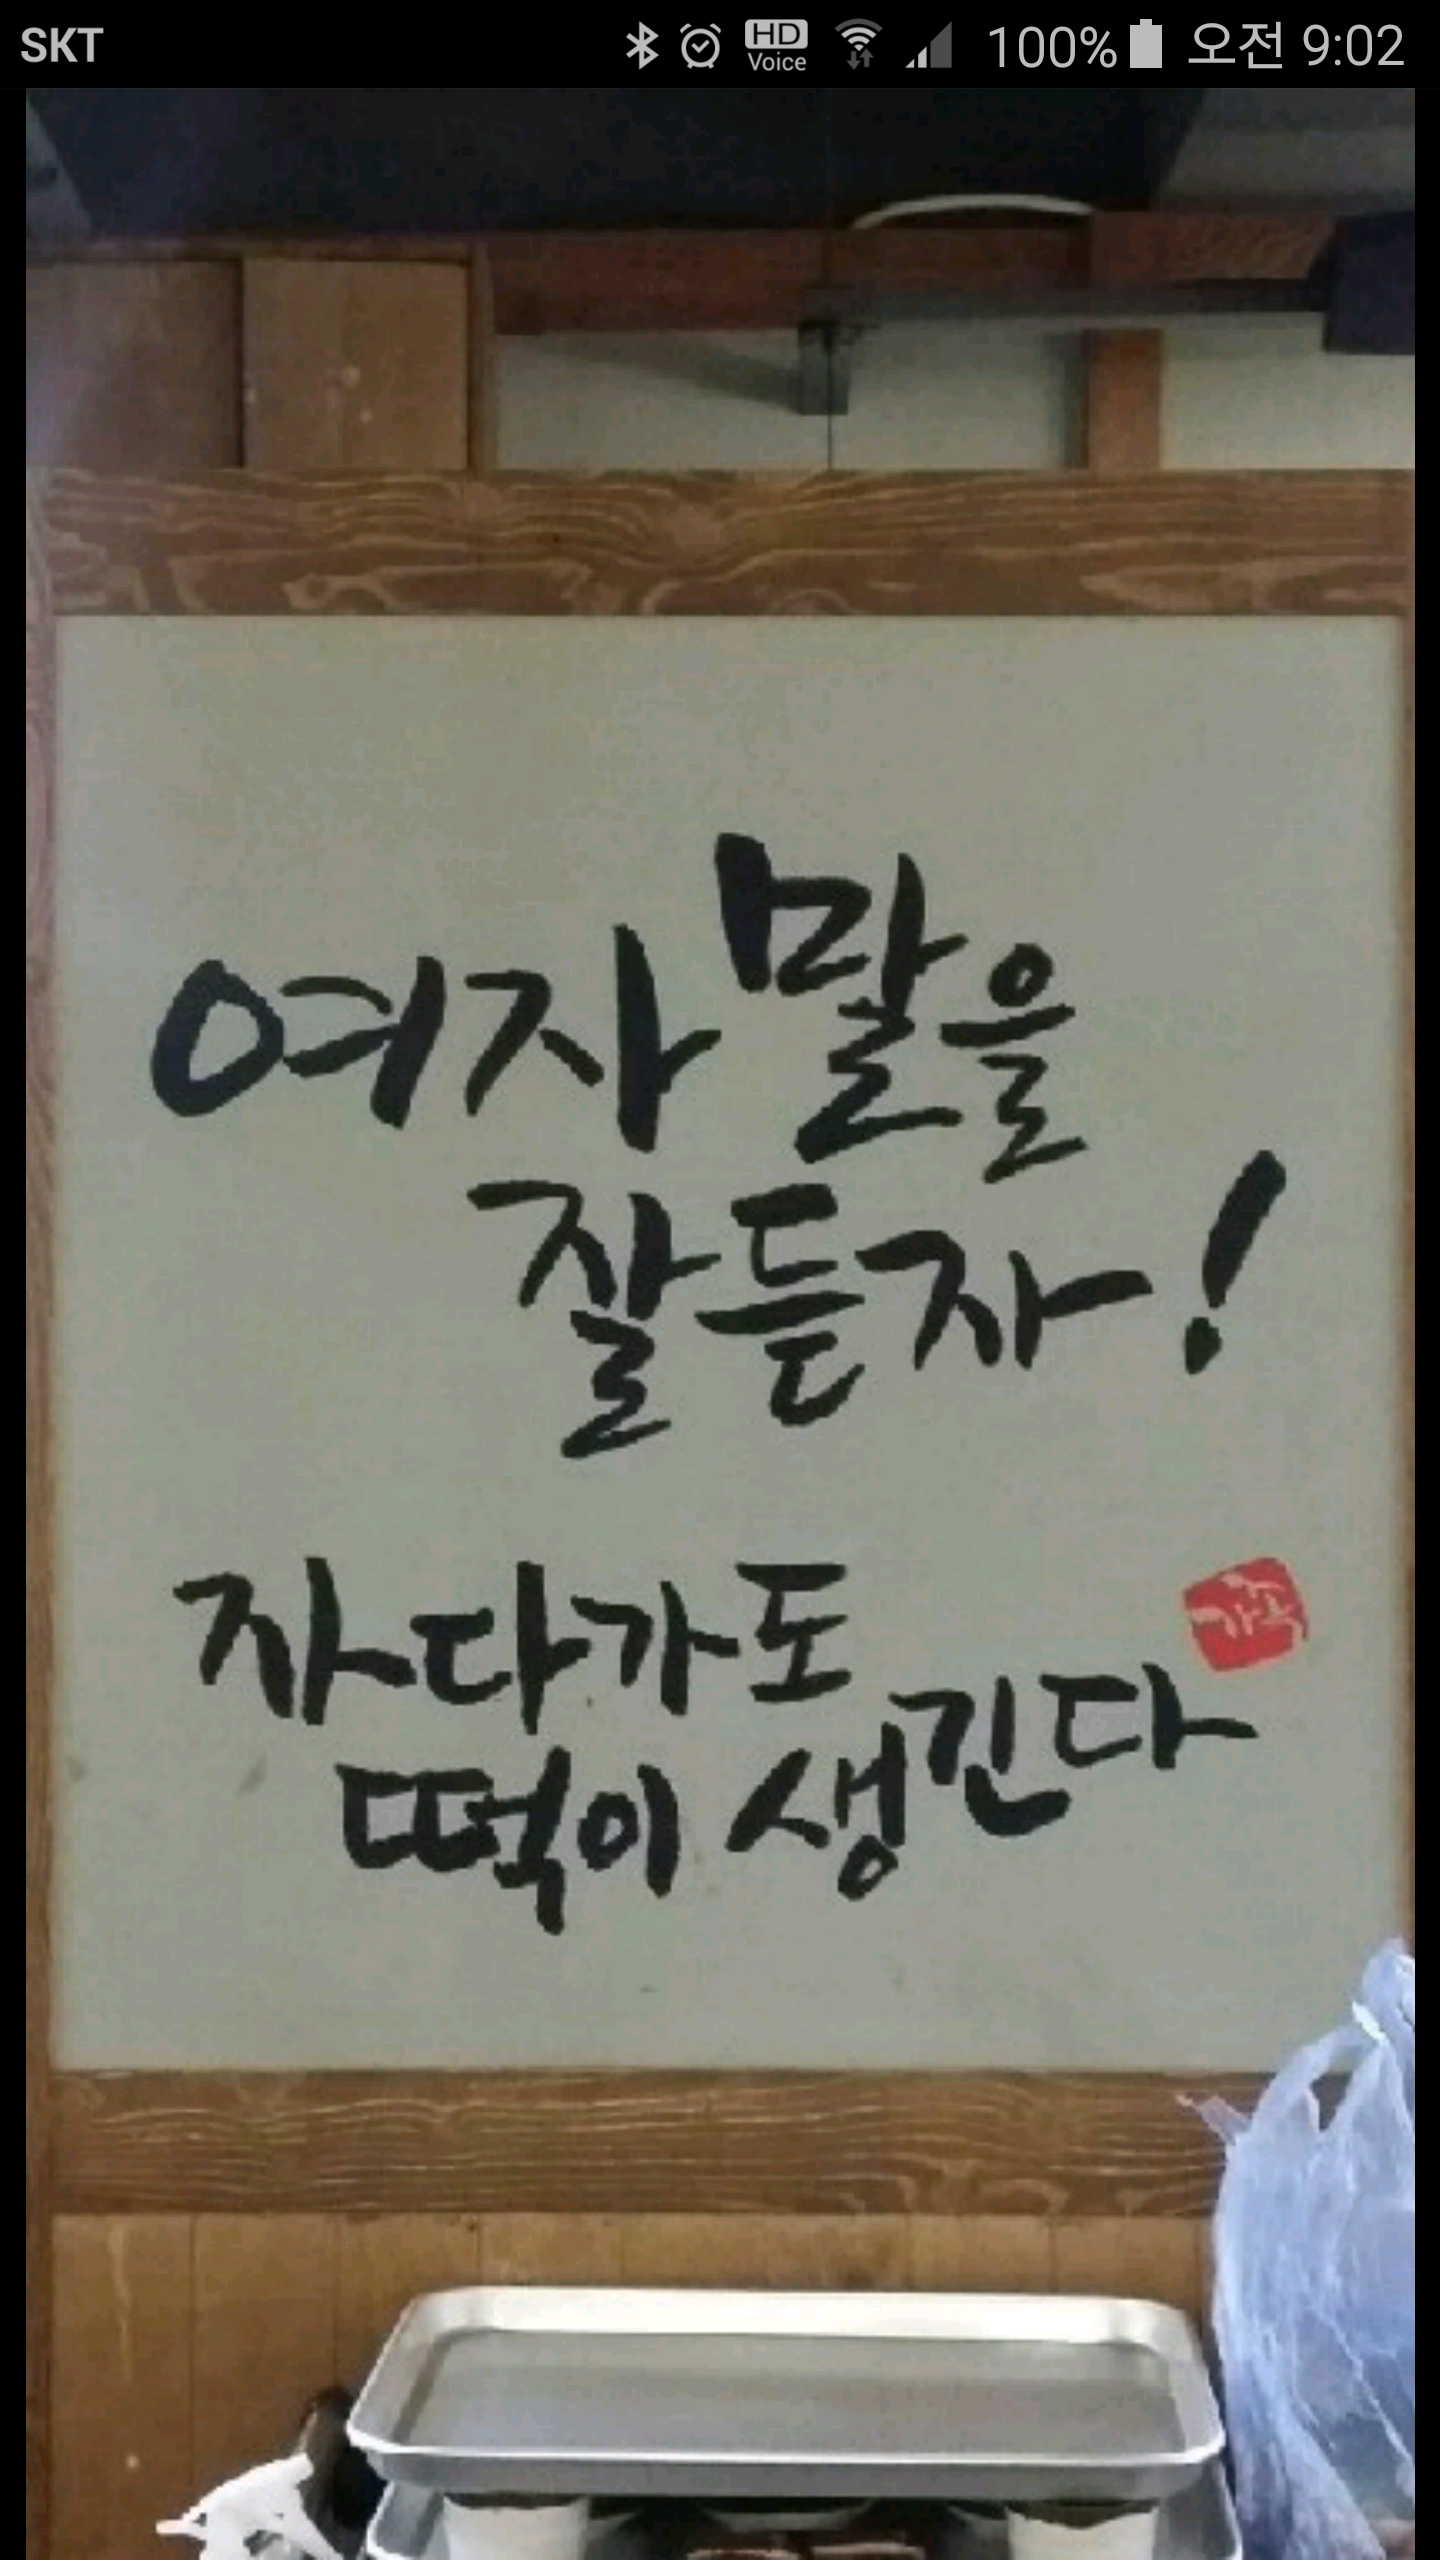 SKT HD Voice 100% 오전 9:02
여자 말을
잘듣자!
자다가도
떡이 생긴다